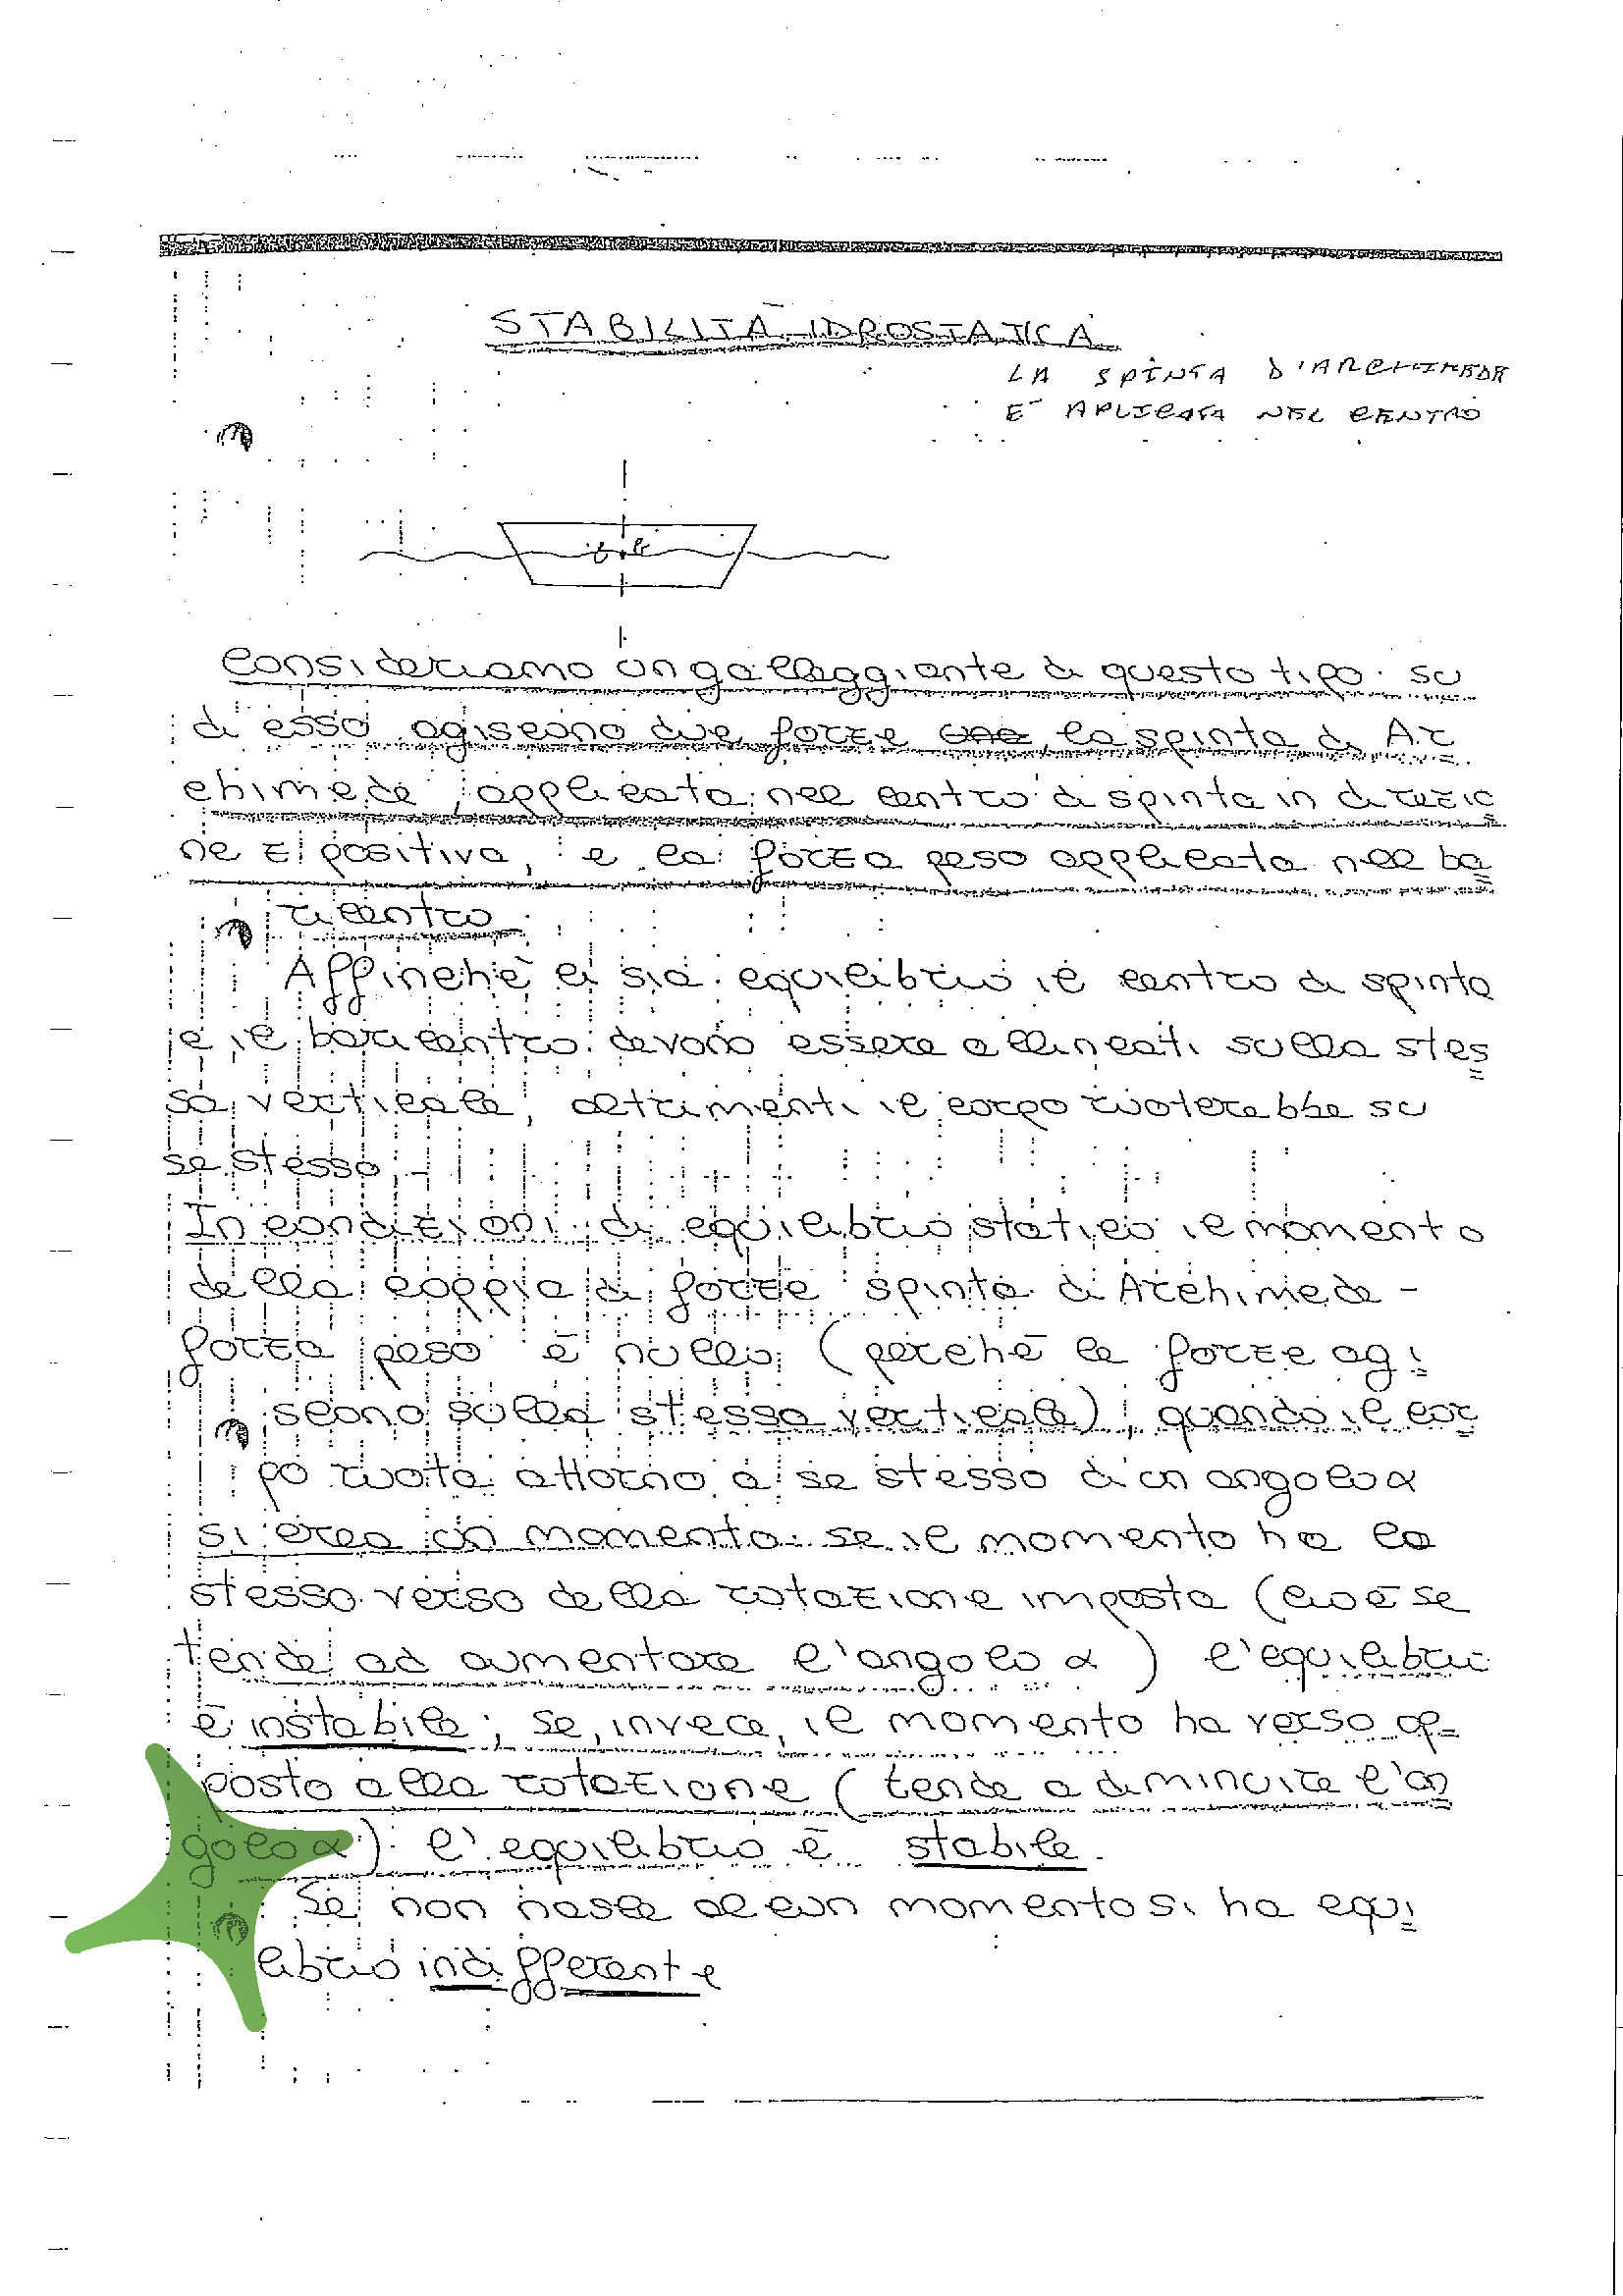 STABILITÀ IDROSTATICA
LA SPINTA D'ARCHIMEDE
E' APLICATA NEL CENTRO
Consideriamo un galleggiante di questo tipo. su
di esso agiscono due forze la spinta di Ar
chimede, applicata nel centro di spinta in direzio
ne z positiva, e la forza peso applicata nel ba
ricentro.
Affinchè ci sia equilibrio il centro di spinta
e il baricentro devono essere allineati sulla stes
sa verticale, altrimenti il corpo ruoterebbe su
se stesso.
In condizioni di equilibrio statico il momento
della coppia di forze spinta di Archimede -
forza peso è nullo (perchè le forze agi
scono sulla stessa verticale), quando il cor
po ruota attorno a se stesso di un angolo α
si crea un momento: se il momento ha lo
stesso verso della rotazione imposta (cioè se
tende ad aumentare l'angolo α) l'equilibrio
è instabile; se, invece, il momento ha verso op
posto alla rotazione (tende a diminuire l'an
golo α) l'equilibrio è stabile.
Se non nasce alcun momento si ha equi
librio indifferente